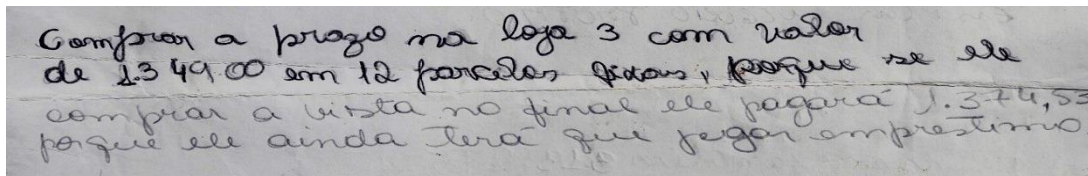 Comprar a prazo na loja 3 com valor
de 1.349.00 em 12 parcelas fixas, porque se ele
comprar a vista no final ele pagará 1.374,53
porque ele ainda terá que pegar emprestimo